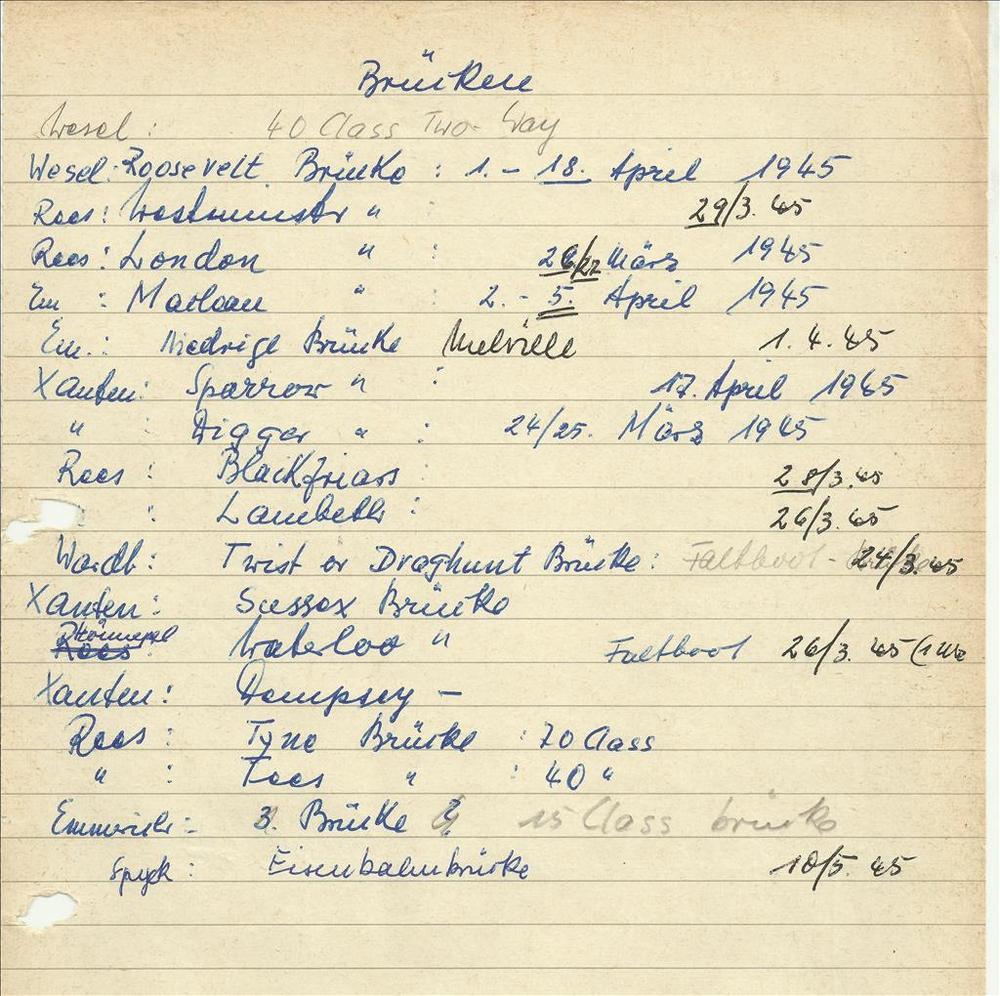 Brücken
Wesel : 40 Class Two-Way
Wesel: Roosevelt Brücke : 1. - 18. April 1945
Rees: Westminster " 29/3. 45
Rees: London " : 26/27 März 1945
Em : Macleau " : 2. - 5. April 1945
Em.: Niedrige Brücke Melville 1. 4. 45
Xanten: Sparrow " : 17. April 1945
" : Digger " : 24/25. März 1945
Rees : Blackfriars : 28/3. 45
: Lambeth : 26/3. 45
Wardt: Twist or Draghunt Brücke : Faltboot - 24/3. 45
Xanten: Sussex Brücke
Rees Hönnepel : Waterloo " Faltboot 26/3. 45 (1
Xanten: Dempsey —
Rees : Tyne Brücke : 70 Class
" : Tees " : 40 "
Emmerich: 3. Brücke ? 15 Class brücke
Spyck : Eisenbahnbrücke 10/5. 45